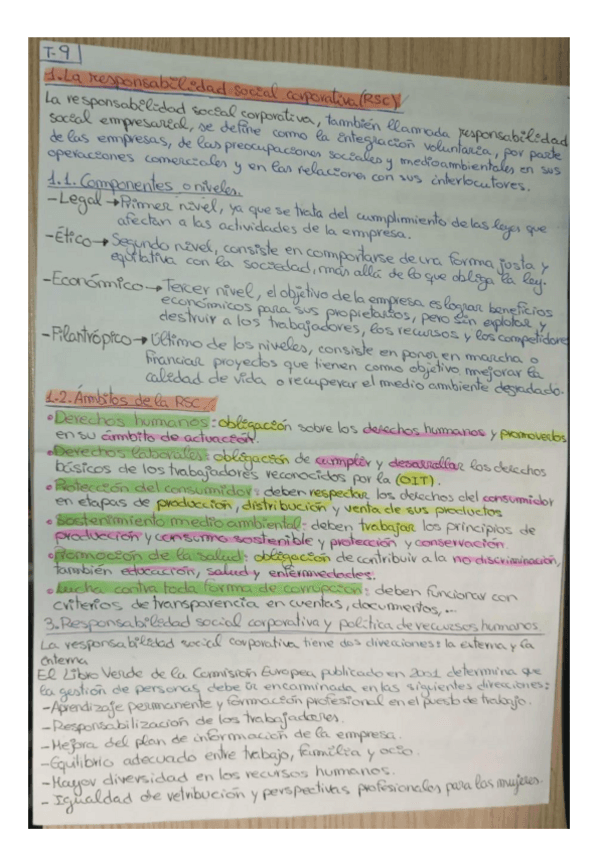 T-9
1. La responsabilidad social corporativa (RSC)
La responsabilidad social corporativa, también llamada responsabilidad
social empresarial, se define como la integración voluntaria, por parte
de las empresas, de las preocupaciones sociales y medioambientales en sus
operaciones comerciales y en las relaciones con sus interlocutores.
1.1. Componentes o niveles
- Legal → Primer nivel, ya que se trata del cumplimiento de las leyes que
afectan a las actividades de la empresa.
- Ético → Segundo nivel, consiste en comportarse de una forma justa y
equitativa con la sociedad, más allá de lo que obliga la ley.
- Económico → Tercer nivel, el objetivo de la empresa es lograr beneficios
económicos para sus propietarios, pero sin explotar y
destruir a los trabajadores, los recursos y los competidores
- Filantrópico → Último de los niveles, consiste en poner en marcha o
financiar proyectos que tienen como objetivo mejorar la
calidad de vida o recuperar el medio ambiente degradado.
1.2. Ámbitos de la RSC
• Derechos humanos: obligación sobre los derechos humanos y promoverlos
en su ámbito de actuación.
• Derechos laborales: obligación de cumplir y desarrollar los derechos
básicos de los trabajadores reconocidos por la (OIT).
• Protección del consumidor: deben respectar los derechos del consumidor
en etapas de producción, distribución y venta de sus productos
• Sostenimiento medio ambiental: deben trabajar los principios de
producción y consumo sostenible y protección y conservación
• Promoción de la salud: obligación de contribuir a la no discriminación,
también educación, salud y enfermedades.
• Lucha contra toda forma de corrupción: deben funcionar con
criterios de transparencia en cuentas, documentos, ...
3. Responsabilidad social corporativa y política de recursos humanos
La responsabilidad social corporativa tiene dos direcciones: la externa y la
interna
El Libro Verde de la Comisión Europea publicado en 2001 determina que
la gestión de personas debe ir encaminada en las siguientes direcciones:
- Aprendizaje permanente y formación profesional en el puesto de trabajo.
- Responsabilización de los trabajadores.
- Mejora del plan de información de la empresa.
- Equilibrio adecuado entre trabajo, familia y ocio.
- Mayor diversidad en los recursos humanos.
- Igualdad de retribución y perspectivas profesionales para las mujeres.